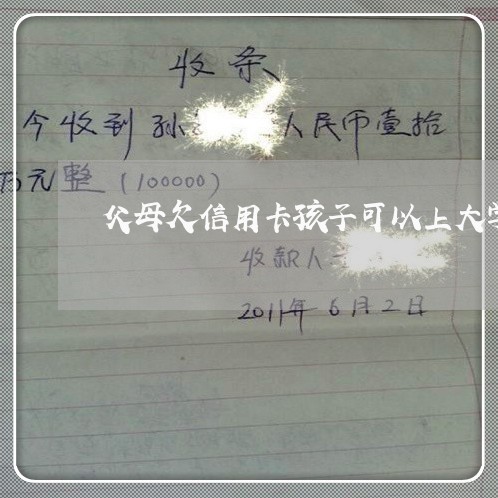 收条
今收到孙 人民币壹拾
万元整(100000)
父母欠信用卡孩子可以上大学
收款人
2011年6月2日